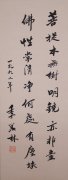 菩提本無樹明鏡亦非臺
佛性常清淨何處有塵埃
一九九二年
季羨林